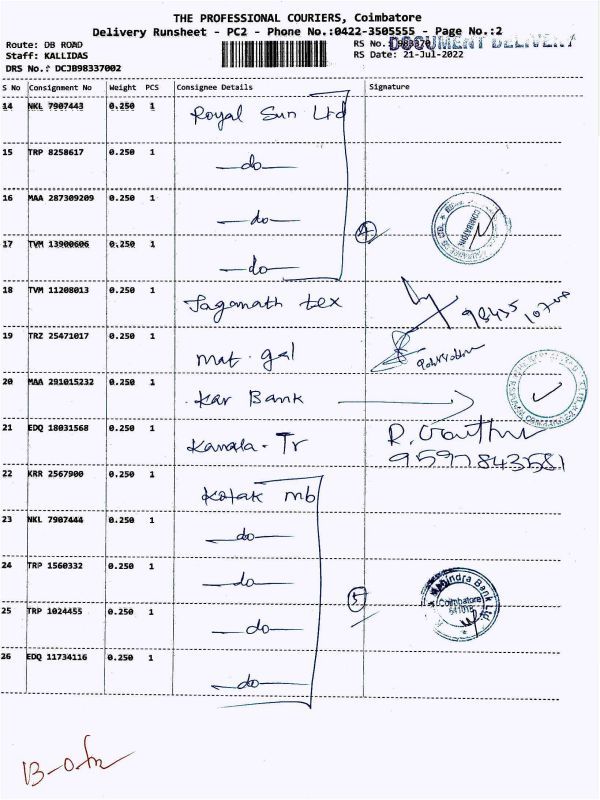 THE PROFESSIONAL COURIERS, Coimbatore
Delivery Runsheet - PC2 - Phone No.:0422-3505555 - Page No.:2
Route: DB ROAD
RS No.:
DOCUMENT DELIVERY
Staff: KALLIDAS
RS Date: 21-Jul-2022
DRS No.: DCJB98337002
S No Consignment No Weight PCS Consignee Details Signature
14 NKL 7907443 0.250 1 Royal Sun Ltd
15 TRP 8258617 0.250 1 —do—
16 MAA 287309209 0.250 1 —do—
4
COIMBATORE
17 TVM 13900606 0.250 1 —do—
18 TVM 11208013 0.250 1 Jaganath tex
98435
19 TRZ 25471017 0.250 1 mat. gal
20 MAA 291015232 0.250 1 Kar Bank
21 EDQ 18031568 0.250 1 Kanala. Tr
R.
9597843581
22 KRR 2567900 0.250 1 Kotak mb
23 NKL 7907444 0.250 1 —do—
24 TRP 1560332 0.250 1 —do—
5
Mahindra Bank Ltd.
Coimbatore
25 TRP 1024455 0.250 1 —do—
26 EDQ 11734116 0.250 1 —do—